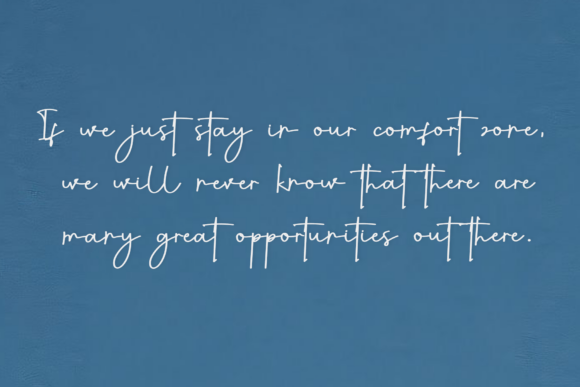 If we just stay in our comfort zone,
we will never know that there are
many great opportunities out there.